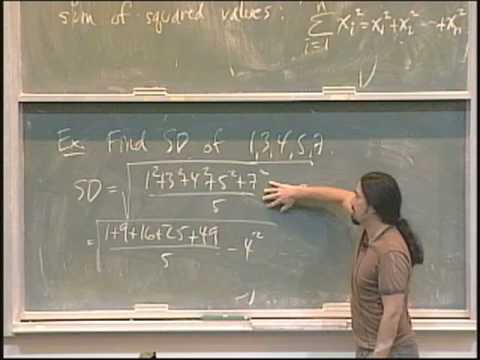 sum of squared values: n∑i=1 xᵢ² = x₁² + x₂² --- + xₙ²
Ex. Find SD of 1,3,4,5,7.
SD = √((1²+3²+4²+5²+7²)/5
= √((1+9+16+25+49)/5 - 4²